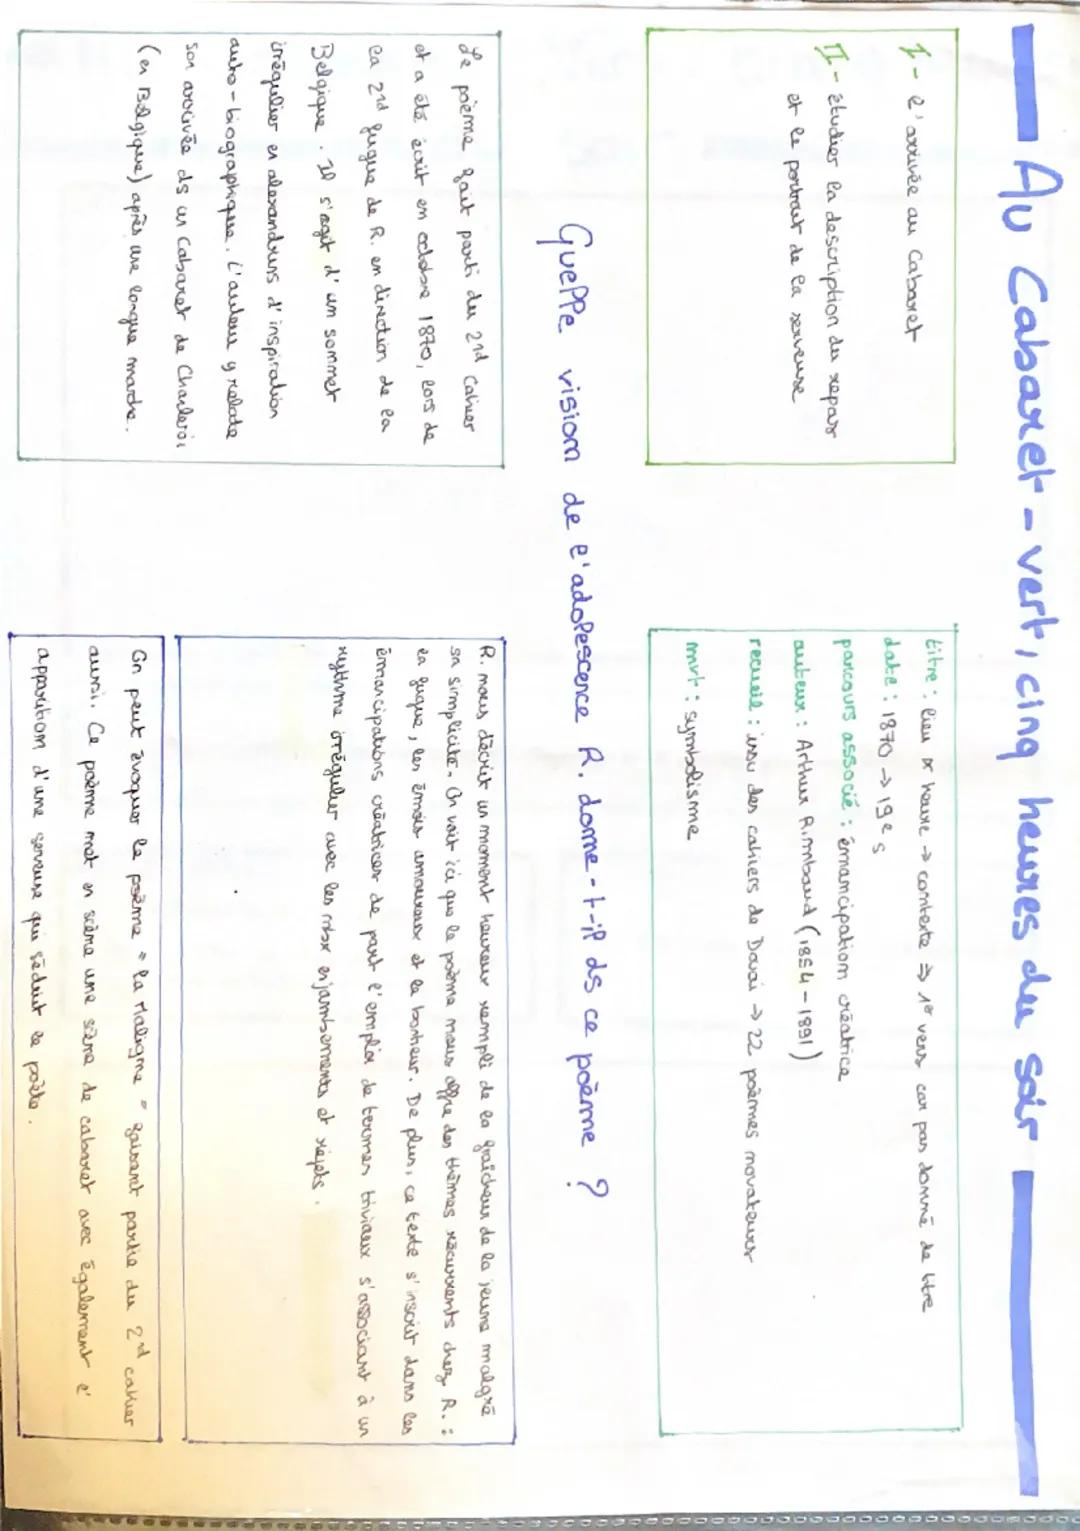 Au Cabaret-vert, cinq heures du soir
I - l'arrivée au Cabaret
II - étudier la description du repas
et le portrait de la serveuse
titre : lieu & heure → contexte ⇒ 1º vers car pas donné de titre
date : 1870 → 19e s
parcours associé : émancipation créatrice
auteur : Arthur Rimbaud (1854 - 1891)
recueil : issu des cahiers de Douai → 22 poèmes novateurs
mvt : symbolisme
Quelle vision de l'adolescence R. donne-t-il ds ce poème ?
Le poème fait parti du 2nd Cahier
et a été écrit en octobre 1870, lors de
la 2nd fugue de R. en direction de la
Belgique. Il s'agit d'un sonnet
irrégulier en alexandrins d'inspiration
auto-biographique. L'auteur y relate
son arrivée ds un Cabaret de Charleroi
(en Belgique) après une longue marche.
R. nous décrit un moment heureux rempli de la fraîcheur de la jeune malgré
sa simplicité. On voit ici que le poème nous offre des thèmes récurrents chez R. :
la fugue, les émois amoureux et le bonheur. De plus, ce texte s'inscrit dans les
émancipations créatrices de part l'emploi de termes triviaux s'associant à un
rythme irrégulier avec les nbx enjambements et rejets.
On peut évoquer le poème "la Maligne" faisant partie du 2nd cahier
aussi. Ce poème met en scène une scène de cabaret avec également l'
apparition d'une serveuse qui séduit le poète.